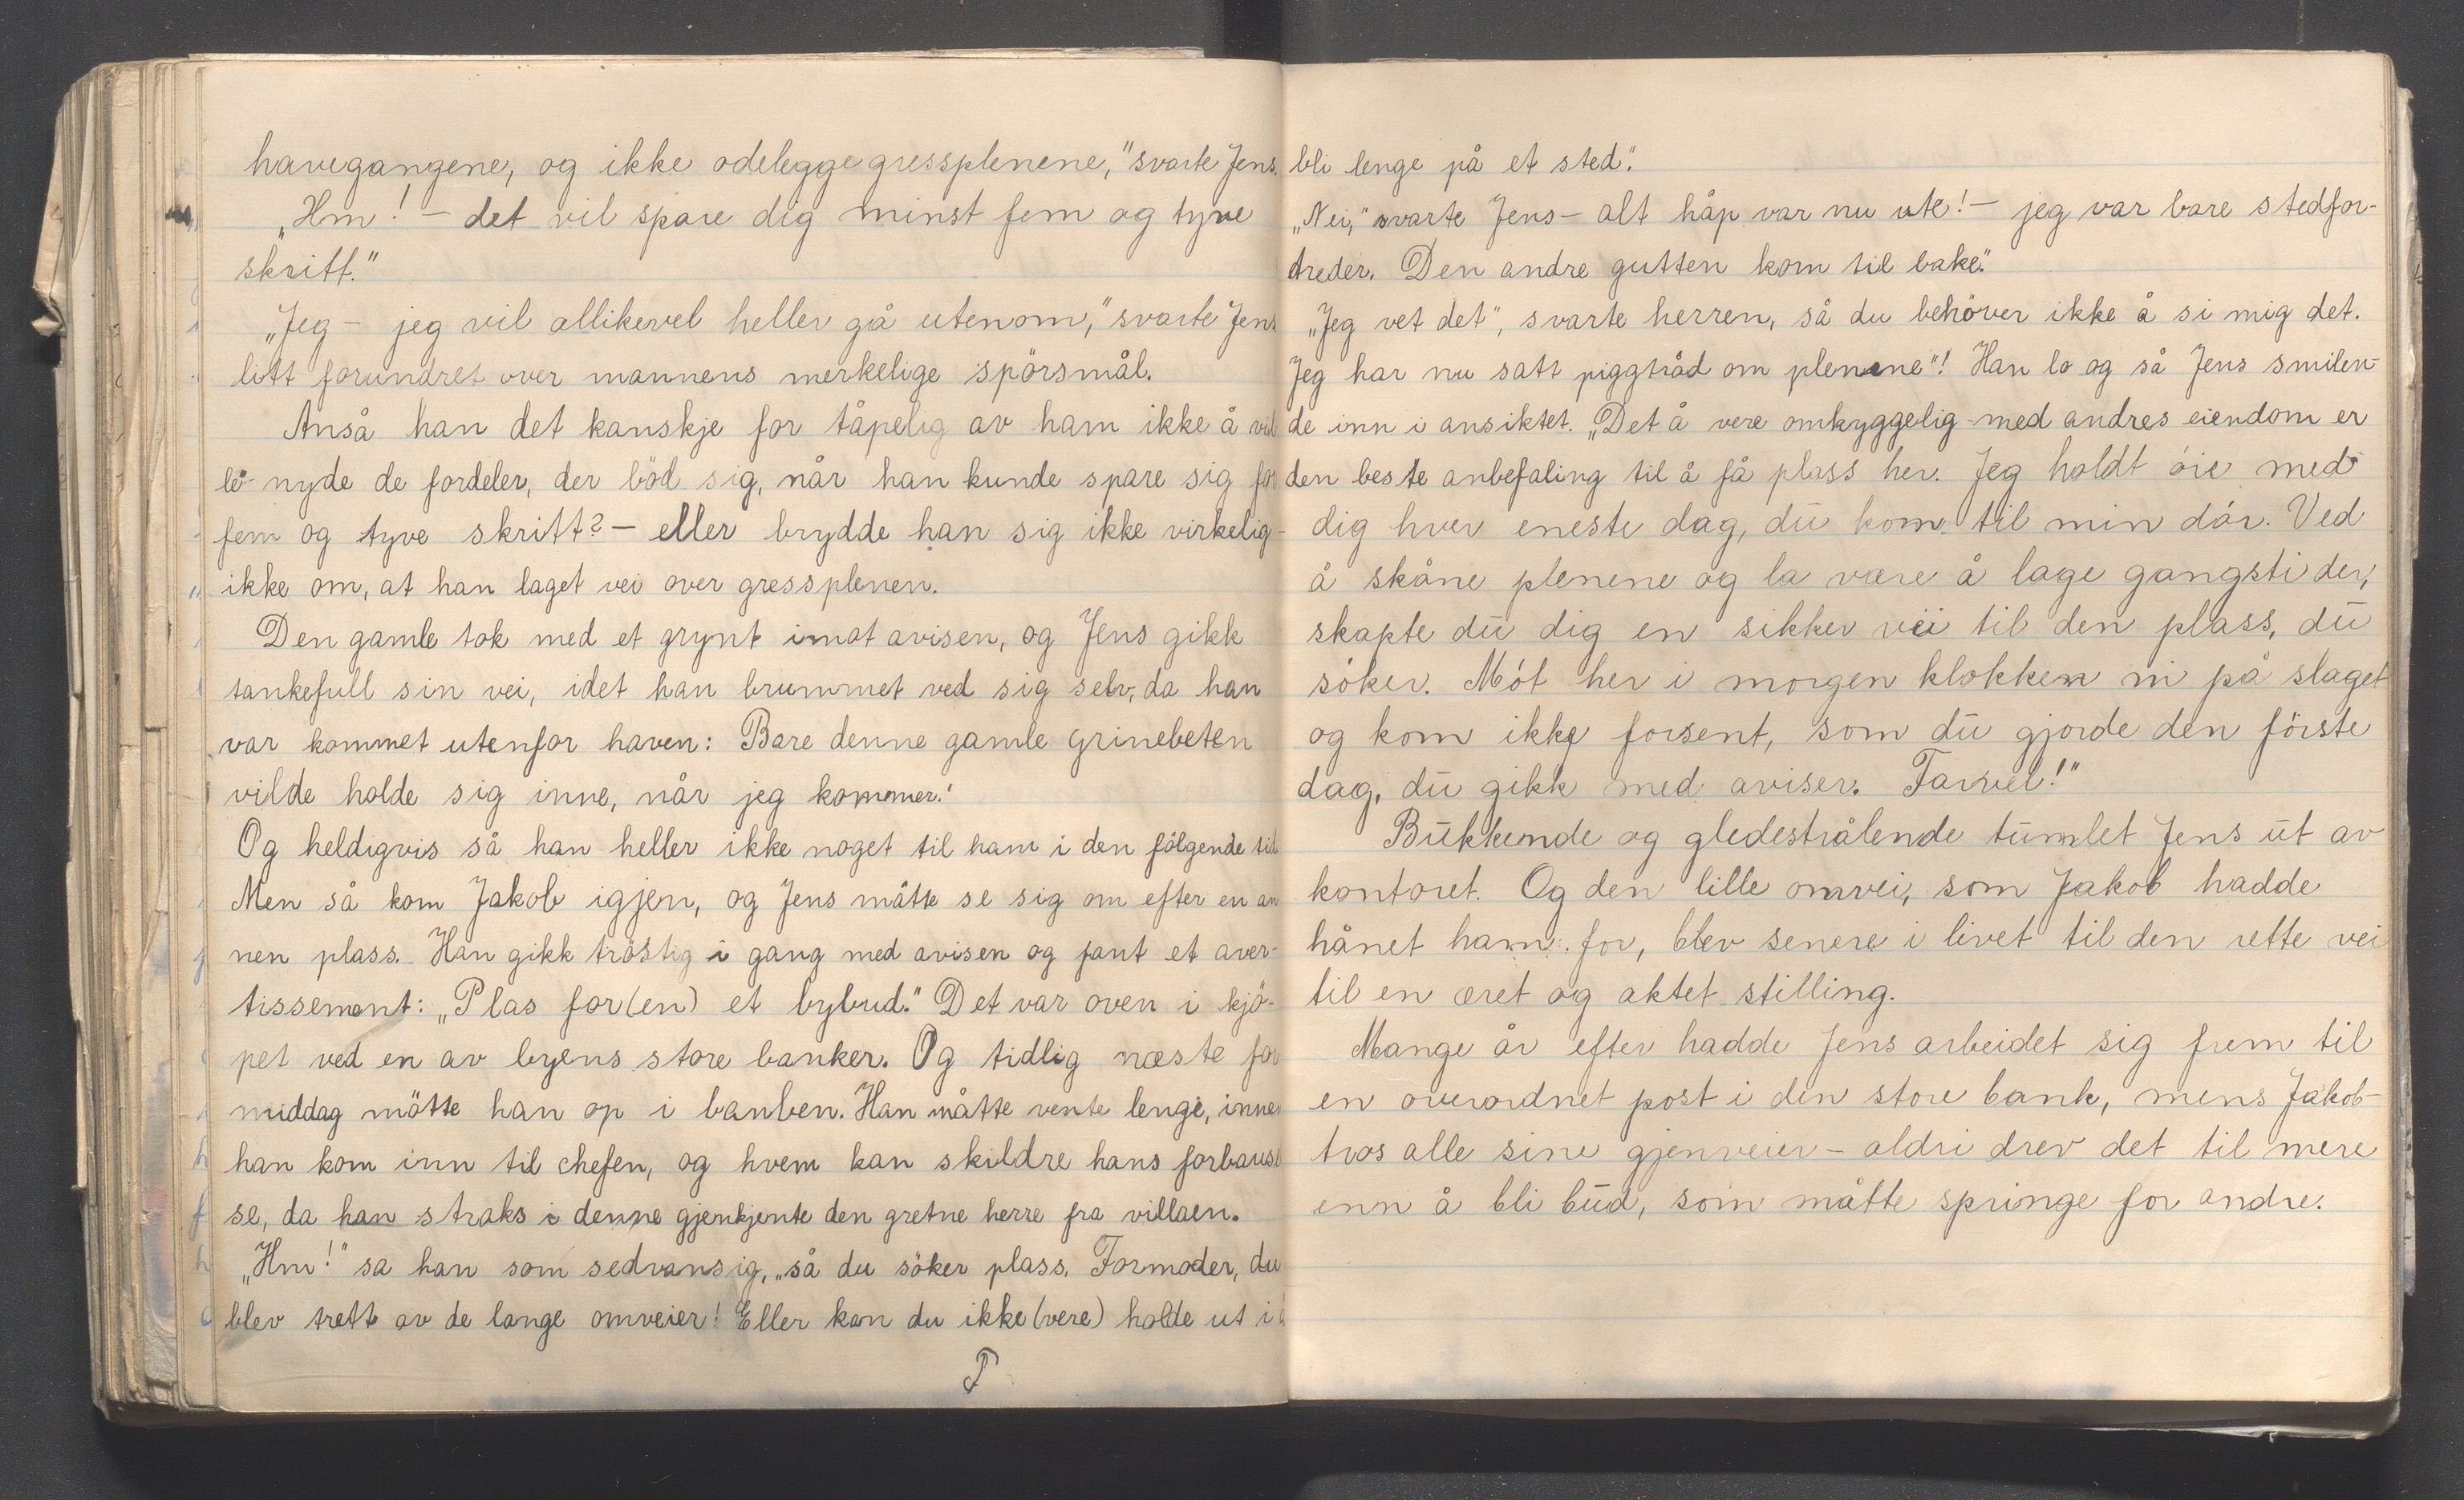 havegangene, og ikke odelegge gressplenene," svarte Jens.
„Hm! – det vil spare dig minst fem og tyve
skritt."
„Jeg – jeg vil allikevel heller gå utenom," svarte Jens
litt forundret over mannens merkelige spörsmål.
Anså han det kanskje for tåpelig av ham ikke å vil
le nyde de fordeler, der böd sig, når han kunde spare sig for
fem og tyve skritt? – eller brydde han sig ikke virkelig-
ikke om, at han laget vei over gressplenen.
Den gamle tok med et grynt imot avisen, og Jens gikk
tankefull sin vei, idet han brummet ved sig selv, da han
var kommet utenfor haven: Bare denne gamle grinebeten
vilde holde sig inne, når jeg kommer!
Og heldigvis så han heller ikke noget til ham i den fölgende tid
Men så kom Jakob igjen, og Jens måtte se sig om efter en an
nen plass. Han gikk tröstig i gang med avisen og fant et aver-
tissement: „Plas for (en) et bybud." Det var oven i kjö-
pet ved en av byens store banker. Og tidlig næste for
middag mötte han op i banken. Han måtte vente lenge, innen
han kom inn til chefen, og hvem kan skildre hans forbausel
se, da han straks i denne gjenkjente den gretne herre fra villaen.
„Hm!" sa han som sedvansig, „så du söker plass. Formoder, du
blev trett av de lange omveier! Eller kan du ikke (vere) holde ut i å
bli lenge på et sted".
„Nei," svarte Jens – alt håp var nu ute! – jeg var bare stedfor-
dreder. Den andre gutten kom til bake."
„Jeg vet det", svarte herren, så du behöver ikke å si mig det.
Jeg har nu satt piggtråd om plenene"! Han lo og så Jens smilen-
de inn i ansiktet. „Det å vere omhyggelig med andres eiendom er
den beste anbefaling til å få plass her. Jeg holdt öie med
dig hver eneste dag, du kom til min dör. Ved
å skåne plenene og la være å lage gangstider,
skapte du dig en sikker vei til den plass, du
söker. Möt her i morgen klokken ni på slaget
og kom ikke forsent, som du gjorde den förste
dag, du gikk med aviser. Farvel!"
Bukkende og gledestrålende tumlet Jens ut av
kontoret. Og den lille omvei, som Jakob hadde
hånet ham for, blev senere i livet til den rette vei
til en æret og aktet stilling.
Mange år efter hadde Jens arbeidet sig frem til
en overordnet post i den store bank, mens Jakob-
tros alle sine gjenveier – aldri drev det til mere
enn å bli bud, som måtte springe for andre.